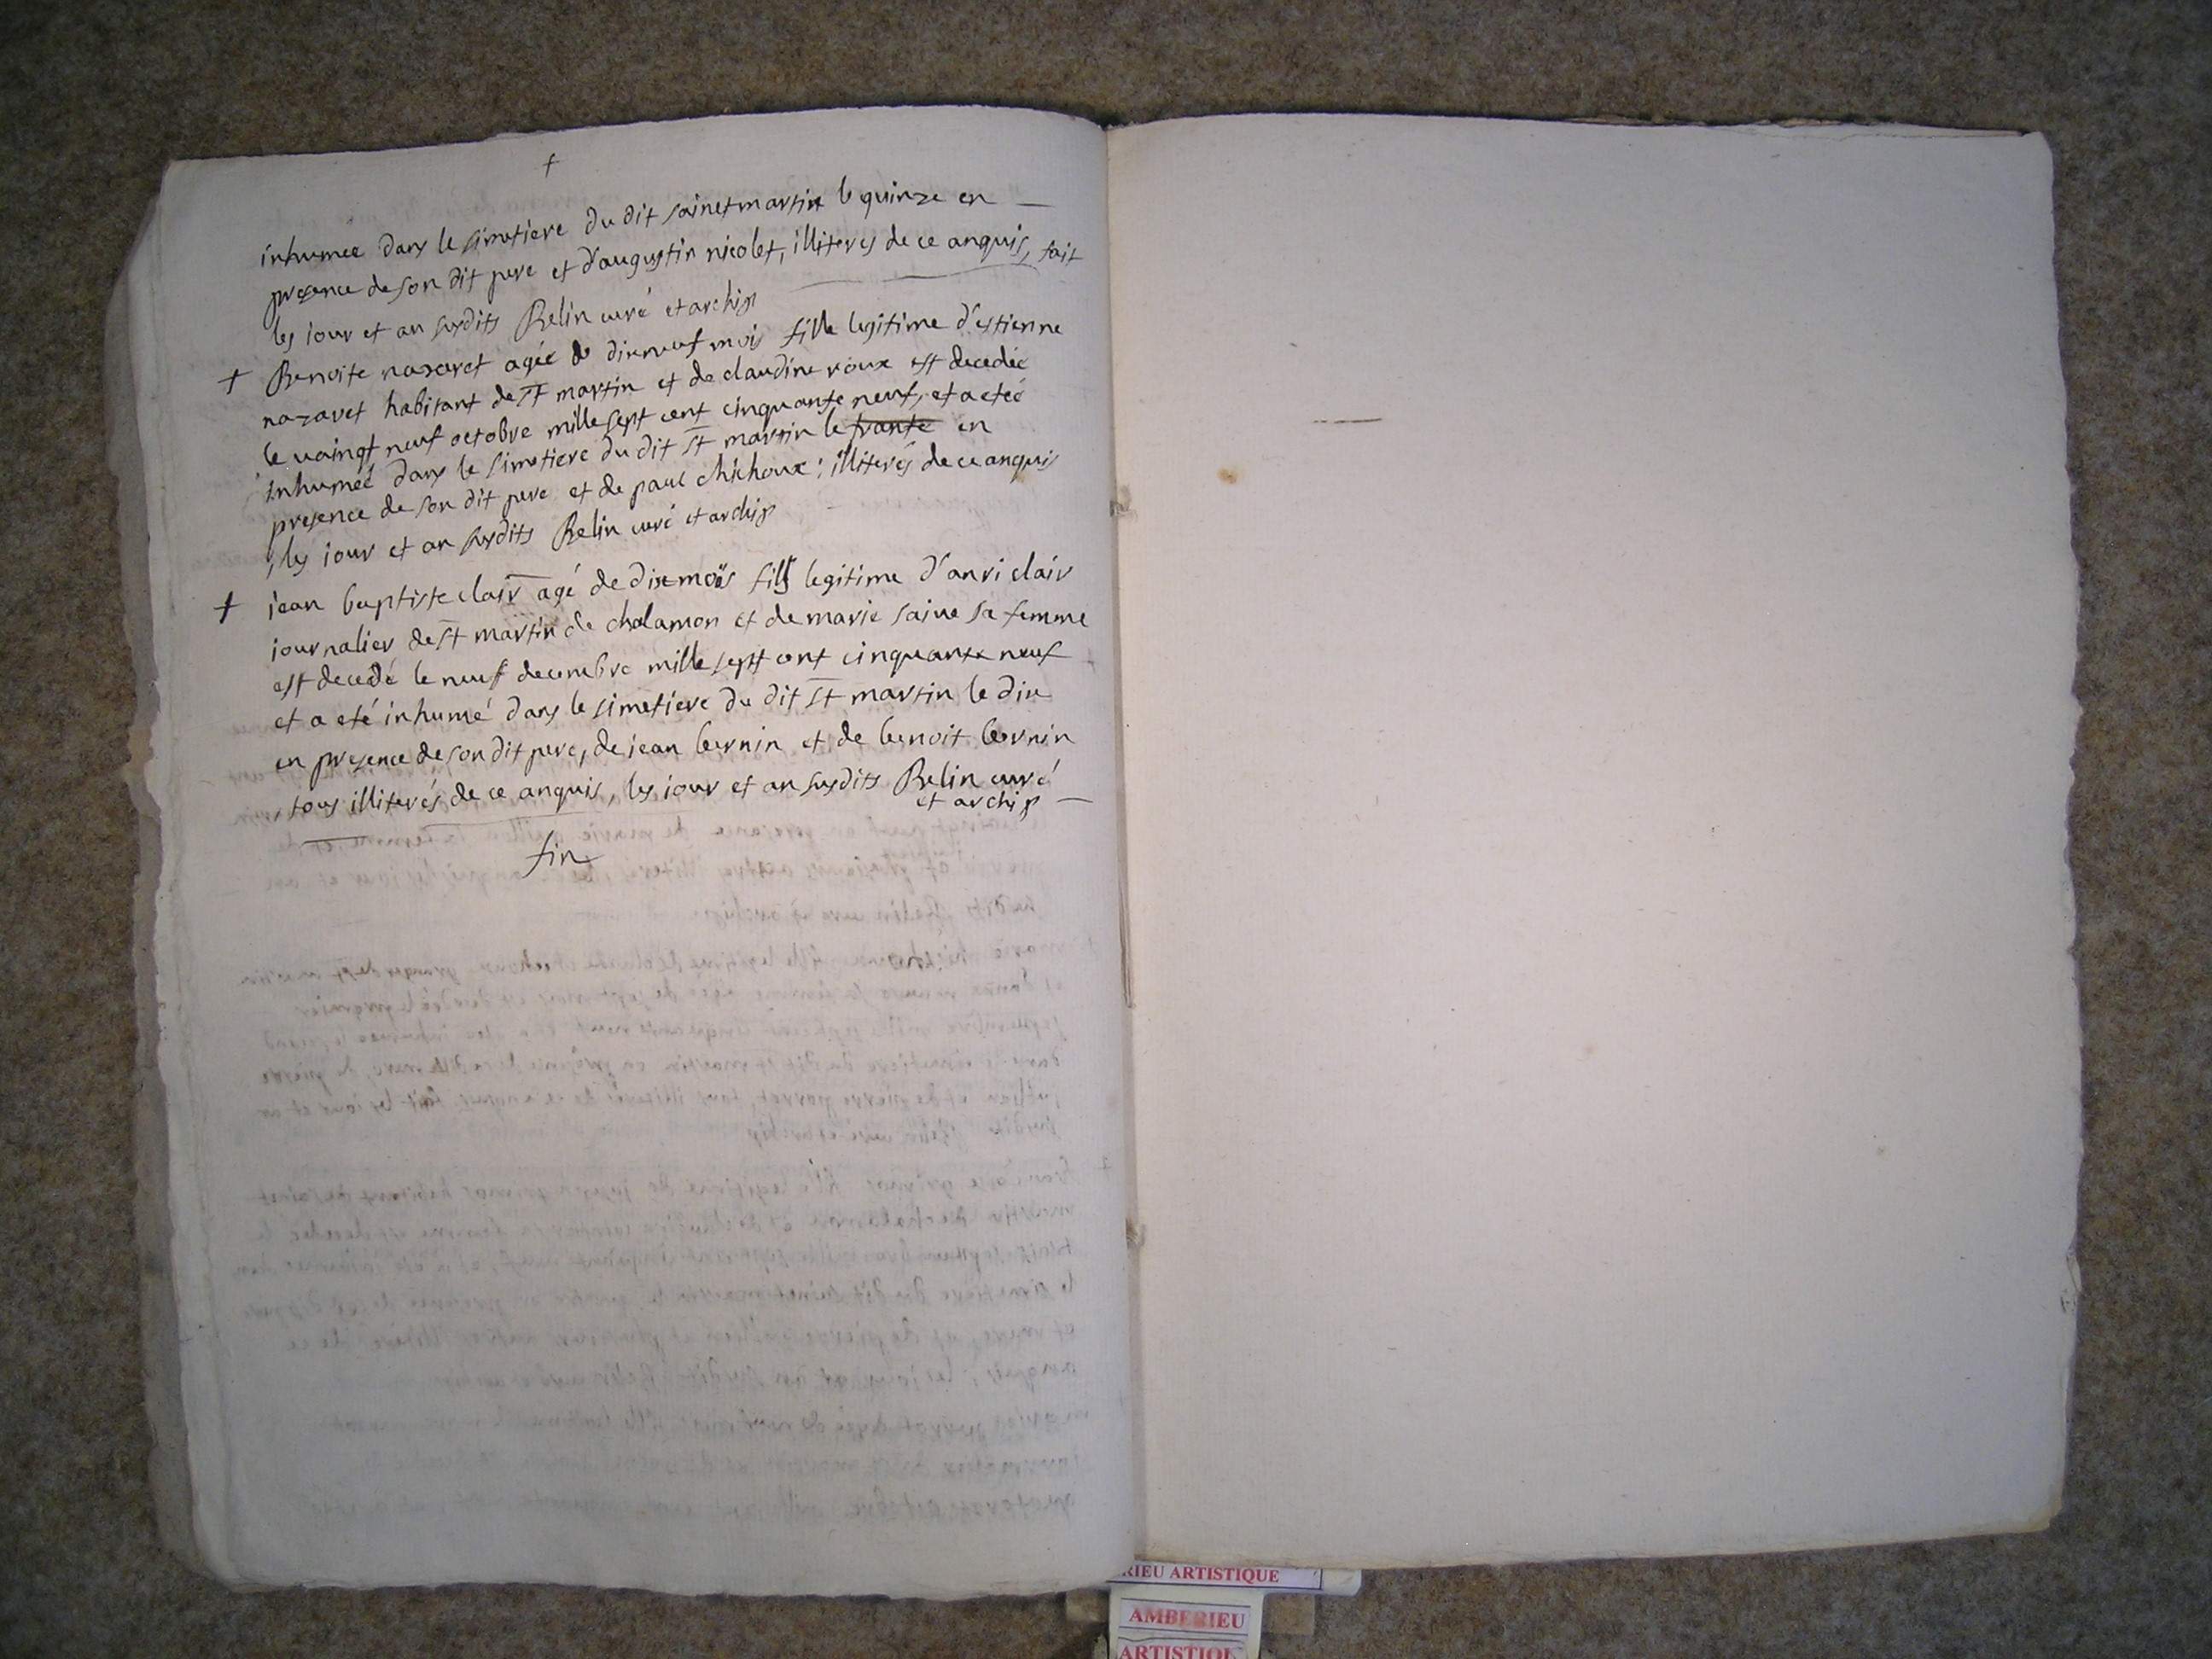 †
inhumee dans le simetiere du dit sainct martin le quinze en
presence de son dit pere et d'augustin nicolet, illiteres de ce anquis, fait
les iour et an susdits Belin curé et archip
† Benoite nazaret agée de dixneuf mois fille legitime d'estienne
nazaret habitant de st martin et de claudine roux est decedée
le vaingt neuf octobre mille sept cent cinquante neuf, et a eteé
inhumeé dans le simetiere du dit st martin le trante en
presence de son dit pere et de paul chichoux; illiterés de ce anquis
, les iour et an susdits Belin curé et archip
† jean baptiste clair agé de dix moïs fils legitime d'anri clair
journalier de st martin de chalamon et de marie saive sa femme
est decedé le neuf decembre mille sept cent cinquante neuf
et a eté inhumé dans le simetiere du dit st martin le dix
en presence de son dit pere, de jean bernin et de benoit bernin
, tous illiterés de ce anquis, les iour et an susdits Belin curé
et archip
fin
RIEU ARTISTIQUE
AMBERIEU
ARTISTIQU